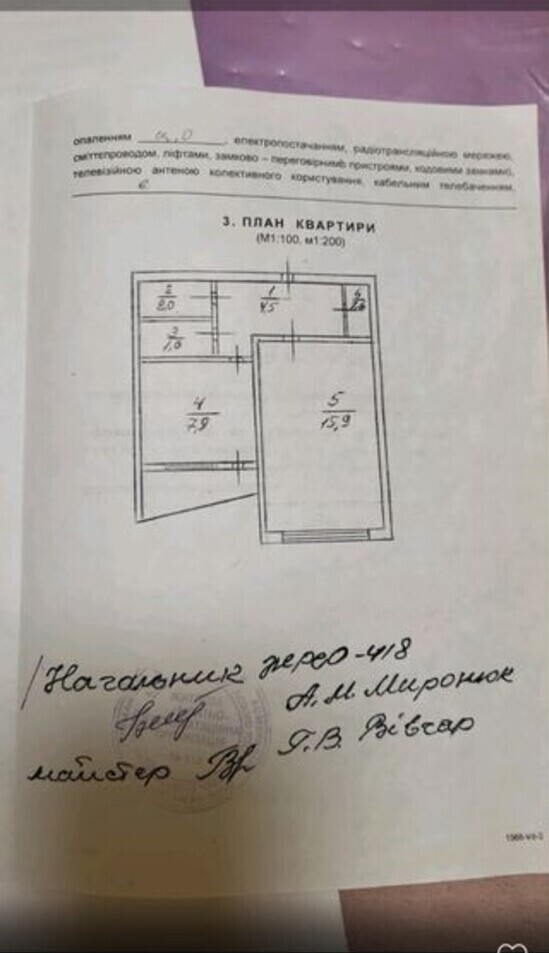 опаленням ц.о , електропостачанням, радіотрансляційною мережею,
сміттєпроводом, ліфтами, замково – переговірними пристроями, кодовими замками),
телевізійною антеною колективного користування, кабельним телебаченням,
є
3. ПЛАН КВАРТИРИ
(М1:100, м1:200)
2 1 6
2,0 4,5
3
1,0
4 5
7,9 15,9
Начальник жрео-418
А.М. Миронюк
майстер Г.В. Вівчар